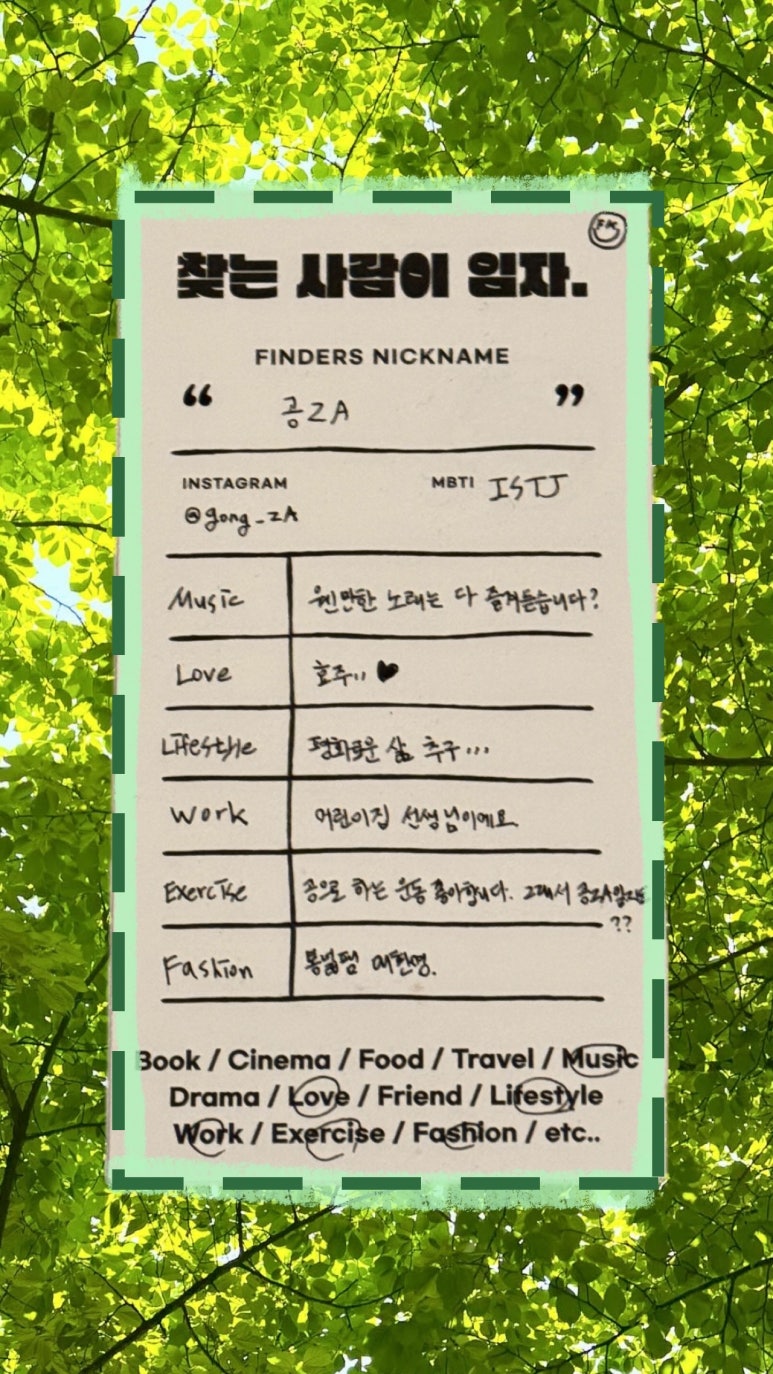 찾는 사람이 임자.
FINDERS NICKNAME
“ 공ZA ”
INSTAGRAM MBTI ISTJ
@gong_zA
Music 웬만한 노래는 다 즐겨듣습니다?
Love 호주.. ♥
Lifestyle 평화로운 삶 추구...
Work 어린이집 선생님이에요
Exercise 공으로 하는 운동 좋아합니다. 그래서 공ZA
??
Fashion
Book / Cinema / Food / Travel / Music
Drama / Love / Friend / Lifestyle
Work / Exercise / Fashion / etc..